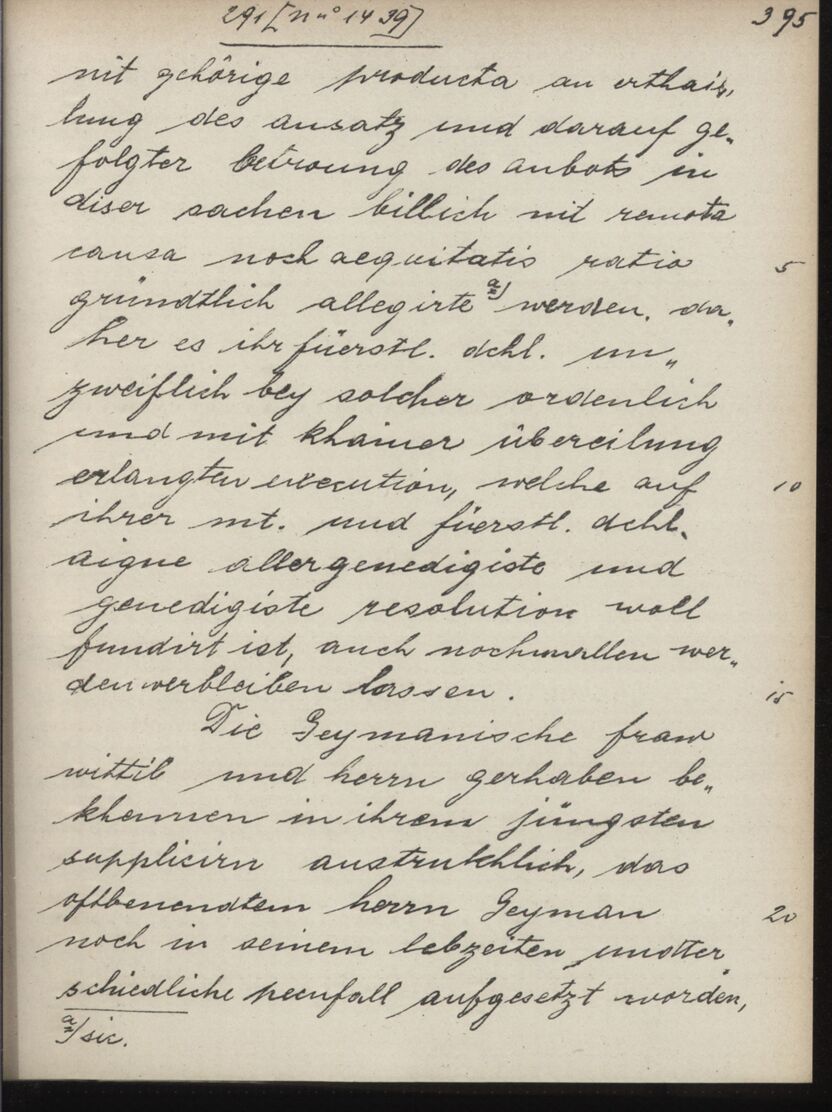 291 [Nro 1439]
395
nit gehörige producta an erthai„
lung des ansatz und darauf ge„
folgter betroung des anbots in
diser sachen billich nit remota
causa noch aequitatis ratio
5
gründtlich allegirte a) werden. da„
her es ihr füerstl. dchl. un„
zweiflich bey solcher ordenlich
und mit khainer übereilung
erlangten execution, welche auf
10
ihrer mt. und füerstl. dchl.
aigne allergenedigiste und
genedigiste resolution woll
fundirt ist, auch nochmallen wer„
den verbleiben lassen.
15
Die Geymanische fraw
wittib und herrn gerhaben be„
khennen in ihrem jüngsten
supplicirn austrukhlich, das
oftbenendtem herrn Geyman
20
noch in seinem lebzeiten undter
schiedliche peenfall aufgesetzt worden,
a) sic.